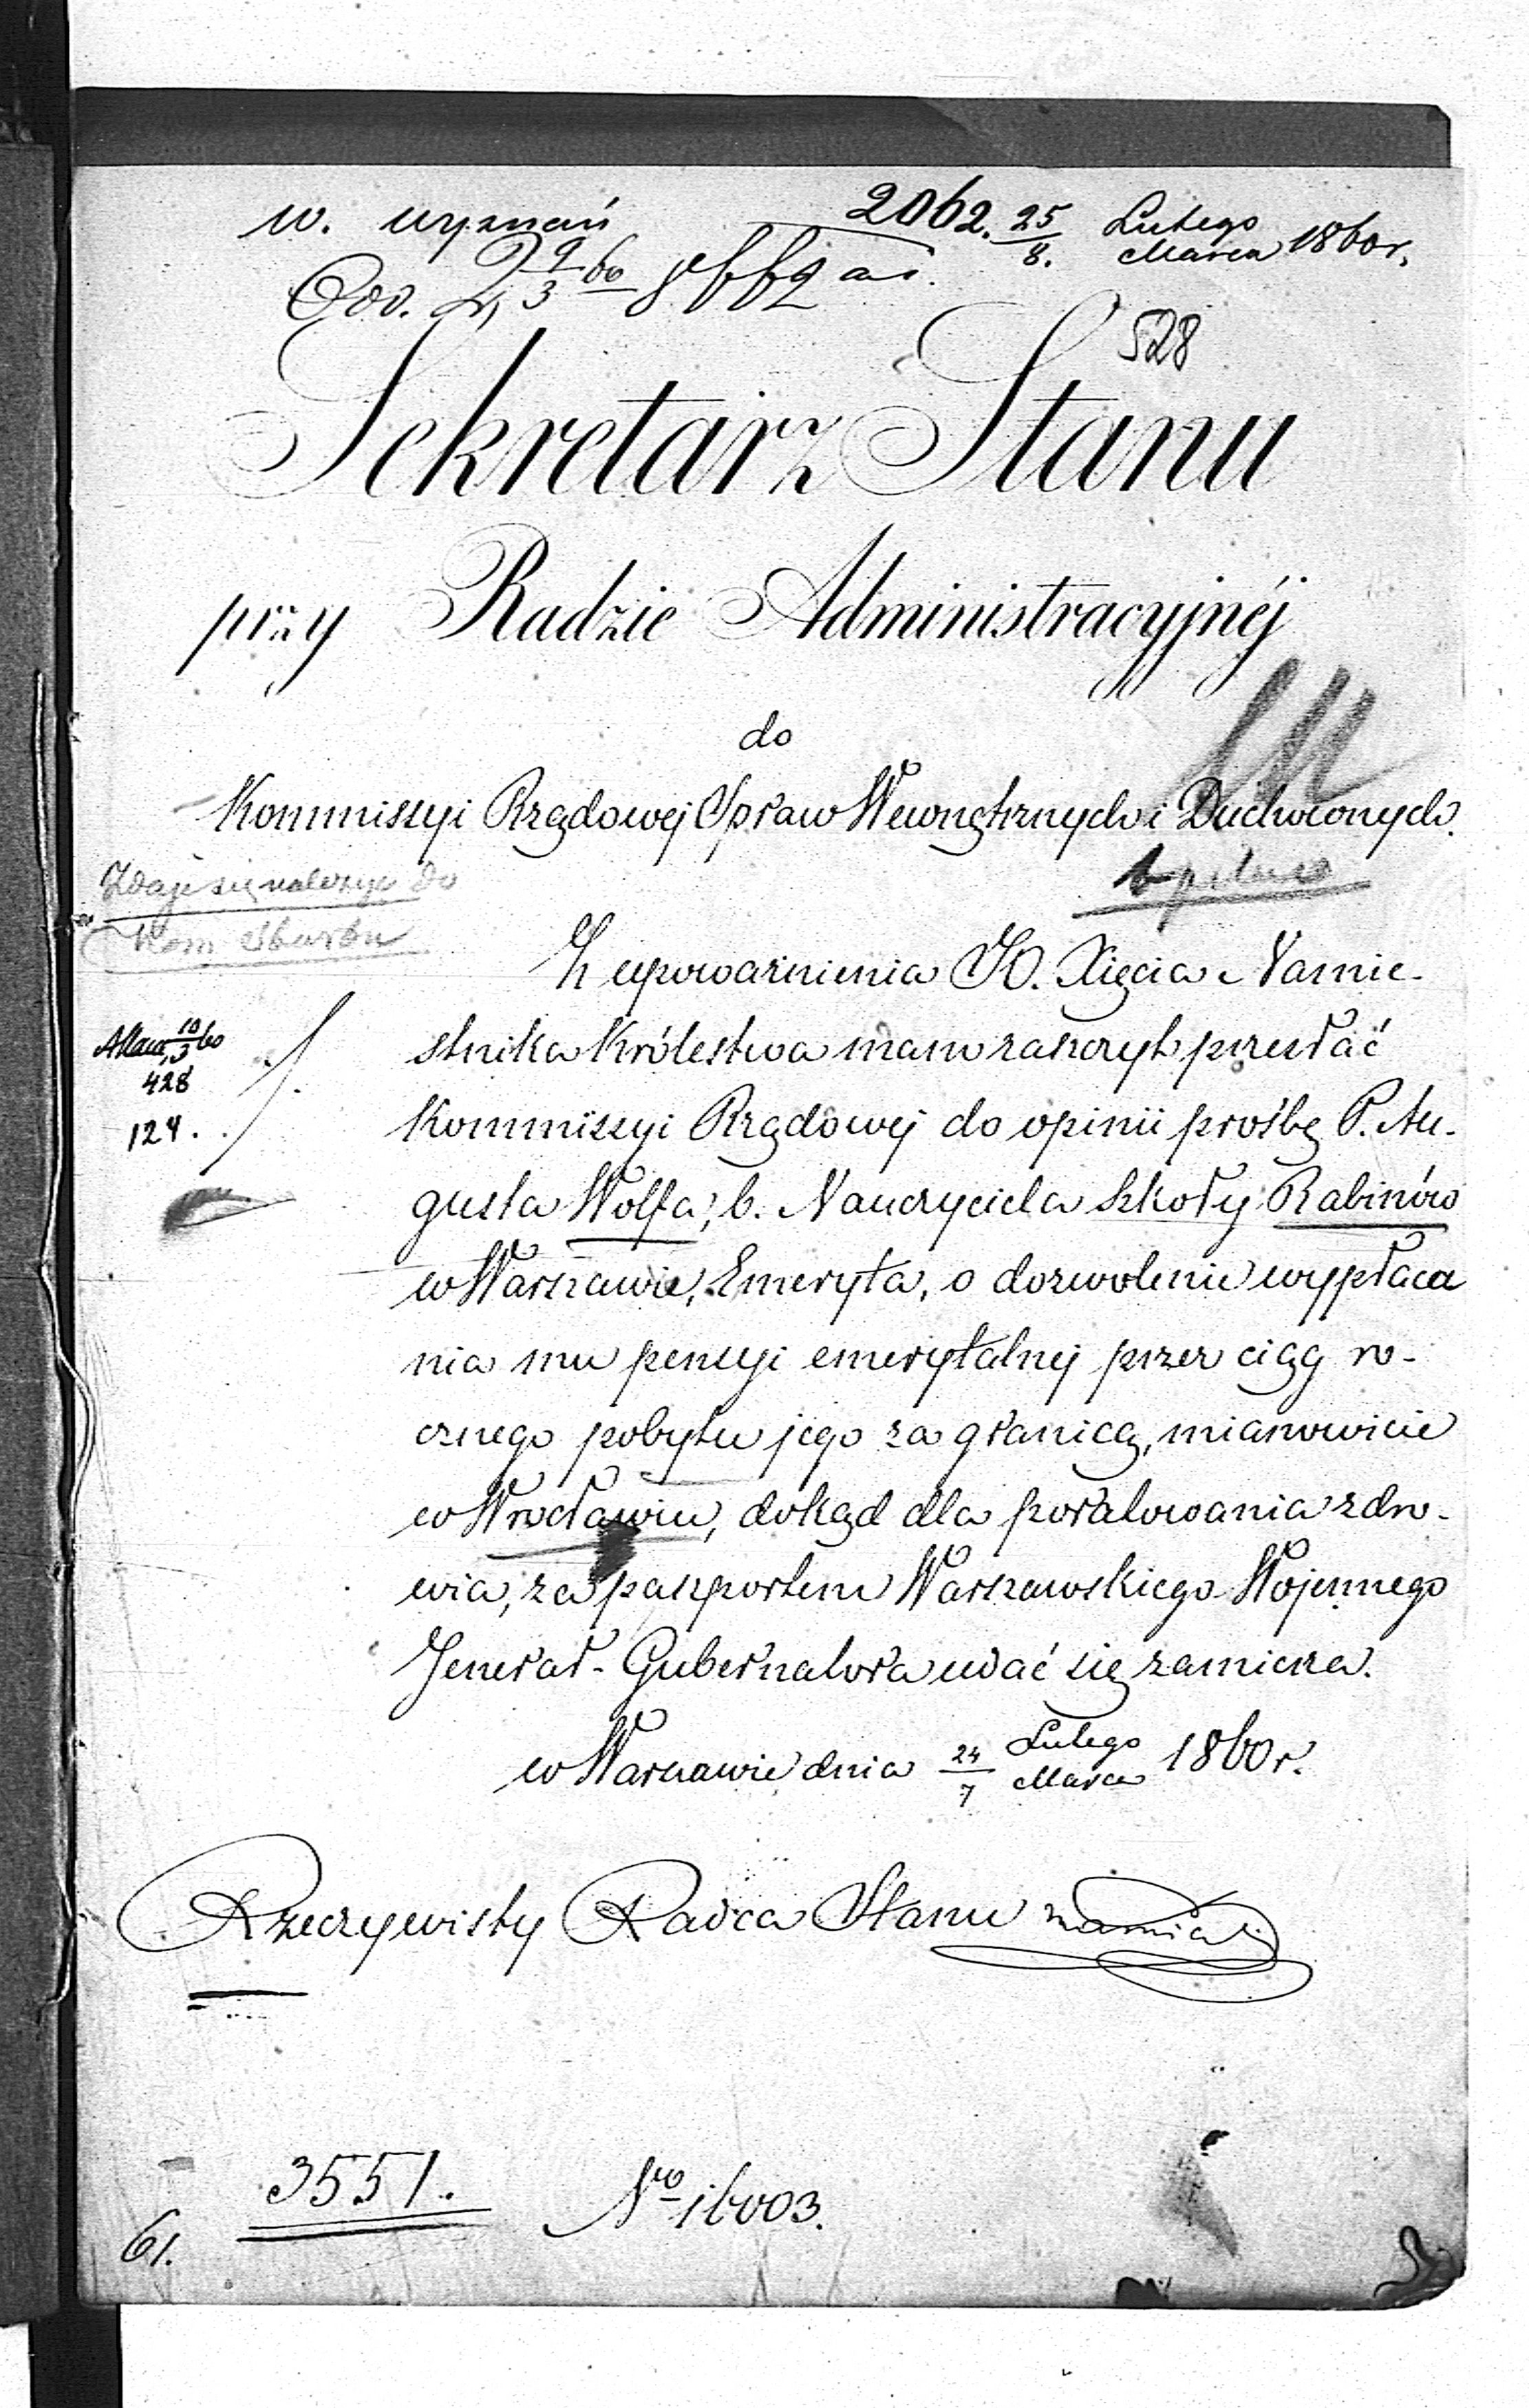 w. wyznań 2062. 25/8. Lutego/Marca 1860 r.
528
Sekretarz Stanu
przy Radzie Administracyjnéj
do
Kommissyi Rządowej Spraw Wewnętrznych i Duchownych.
Zdaje się należeć do
Kom Skarbu
Z upoważnienia JO. Xięcia Namie-
stnika Królestwa mam zaszczyt przesłać
428
124.
Kommissyi Rządowej do opinii prośbę P. Au-
gusta Wolfa, b. Nauczyciela Szkoły Rabinów
w Warszawie, Emeryta, o dozwolenie wypłaca
nia mu pensyi emerytalnej przez ciąg ro-
cznego pobytu jego za granicą, mianowicie
w Wrocławiu, dokąd dla poratowania zdro-
wia, za paszportem Warszawskiego Wojennego
Jenerał-Gubernatora udać się zamierza.
w Warszawie dnia 24/7 Lutego/Marca 1860 r.
Rzeczywisty Radca Stanu
3551. No 16003.
61.